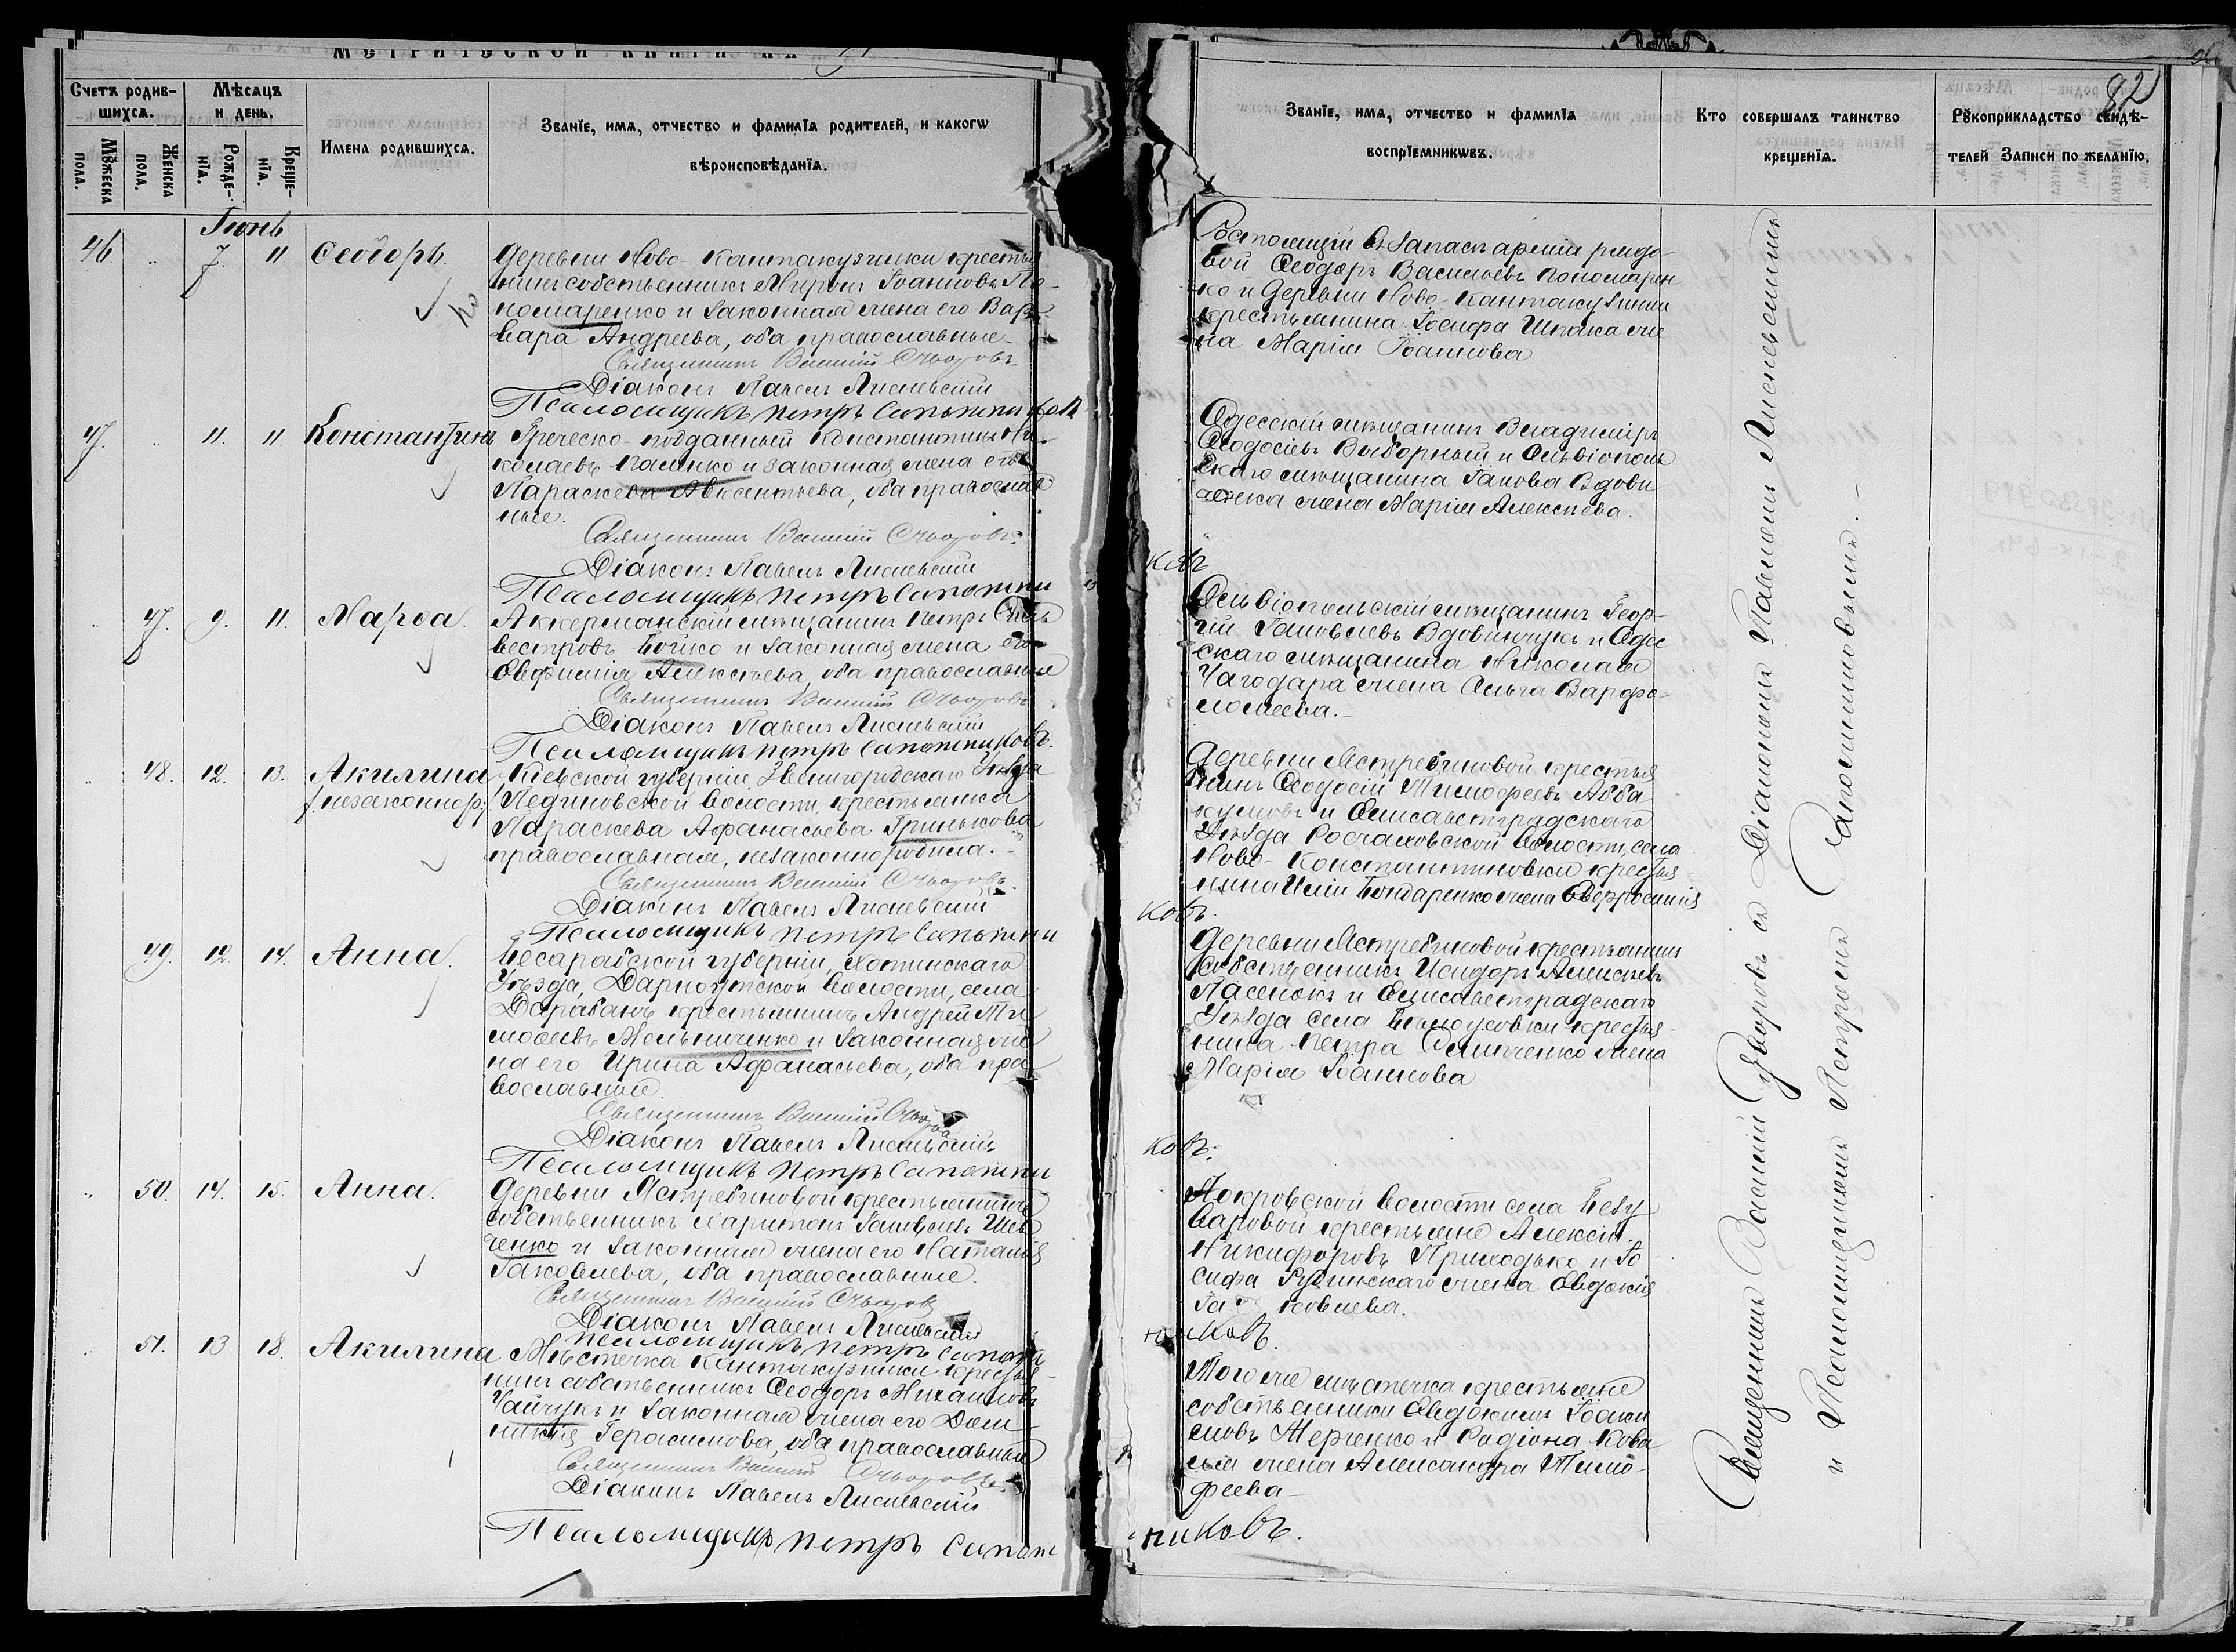 метрической книги на
Счетъ родив-
шихсѧ.
Мѣсѧцъ
и день.
Мꙋжеска
пола.
Женска
пола.
Рожде-
нїѧ.
Креще-
нїѧ.
Имена родившихсѧ.
Званїе, имѧ, отчество и фамилїѧ родителей, и какогѡ
вѣроисповѣданїѧ.
Іюнь
46 7. 11 Ѳеодоръ.
деревни Ново-Кантакузинки крестья
нинъ собственникъ Миронъ Іоанновъ По-
номаренко и законная жена его Вар
вара Андреева, оба православные
Священникъ Василій
Діаконъ Павелъ Лисневскій
Псаломщикъ Петръ Сапожниковъ
47. 11. 11 Константинъ
Греческо-подданный Константинъ Ни-
колаевъ и законная жена его
Параскева Авксентьева, оба православ
ные.
Священникъ Василій
Діаконъ Павелъ Лисневскій
Псаломщикъ Петръ Сапожни
47. 9. 11. Марѳа.
Аккерманскій мѣщанинъ Петръ Сель
вестровъ Бойко и законная жена его
Евфимія Алексѣева, оба православные
Священникъ Василій
Діаконъ Павелъ Лисневскій
Псаломщикъ Петръ Сапожниковъ.
48. 12. 13. Акилина
/незаконнор./
Кіевской губерніи, Звенигородскаго Уѣзда
волости, крестьянка
Параскева Афанасьева Гринькова
православная, незаконно родила.
Священникъ Василій
Діаконъ Павелъ Лисневскій
Псаломщикъ Петръ Сапожни
49. 12. 14. Анна.
Бесарабской губерніи, Хотинскаго
Уѣзда, волости, села
Дарабанъ крестьянинъ Андрей Ти
моѳеевъ Мельниченко и законная же
на его Ирина Афанасьева, оба пра
вославные.
Священникъ Василій
Діаконъ Павелъ Лисневскій
Псаломщикъ Петръ Сапожни
50. 14. 15. Анна.
деревни Ястребиновой крестьянинъ
собственникъ Харитонъ Іаковлевъ Шев
ченко и законная жена его Наталія
Іаковлева, оба православные.
Священникъ Василій
Діаконъ Павелъ Лисневскій
Псаломщикъ Петръ Сапож
51. 13 18. Акилина
Мѣстечка Кантакузинки крестья-
нинъ собственникъ Ѳеодоръ Михаиловъ
Чайчукъ и законная жена его Дом
никія Герасимова, оба православные
Священникъ Василій
Діаконъ Павелъ Лисневскій
Псаломщикъ Петръ Сапож
82
Званїе, имѧ, отчество и фамилїѧ
воспрїемникѡвъ.
Кто совершалъ таинство
крещенїѧ.
Рꙋкоприкладство свидѣ-
телей Записи по желанїю.
Состоящій въ запасѣ арміи рядо-
вой Ѳеодоръ Васильевъ Пономарен
ко и деревни Ново-Кантакузинки
крестьянина Іосифа Шпака же
на Марія Іоаннова
Одесскій мѣщанинъ Владиміръ
Ѳеодосіевъ Выборный и Ольвіополь
скаго мѣщанина Іакова Вдови
ченка жена Марія Алексѣева.
ковъ
Ольвіопольскій мѣщанинъ Геор-
гій Іаковлевъ Вдовинчукъ и Одес
скаго мѣщанина Николая
Чагодара жена Ольга Варфо-
ломеева.
деревни Ястребиновой крестья
нинъ Ѳеодосій Тимофеевъ Абба
кумовъ и Елисаветградскаго
Уѣзда волости, села
Ново-Константиновки крестья
нина Иліи Бондаренко жена Евфросинія
ковъ.
деревни Ястребиновой крестьянинъ
собственникъ Исидоръ Алексѣевъ
Пасенокъ и Елисаветградскаго
Уѣзда села Бѣлоусовки крестья-
нина Петра жена
Марія Іоаннова
ковъ.
Покровской волости села Безу
варовой крестьяне Алексій
Никифоровъ Приходько и Іо
сифа Рудинскаго жена Евдокія
Іаковлева.
никовъ
Того же мѣстечка крестьяне
собственники Евдокимъ Іоаки
мовъ и Родіона Кова
ля жена Александра Тимо-
феева
никовъ.
Священникъ Василій съ Діакономъ Павломъ Лисневскимъ
и Псаломщикомъ Петромъ Сапожниковымъ.